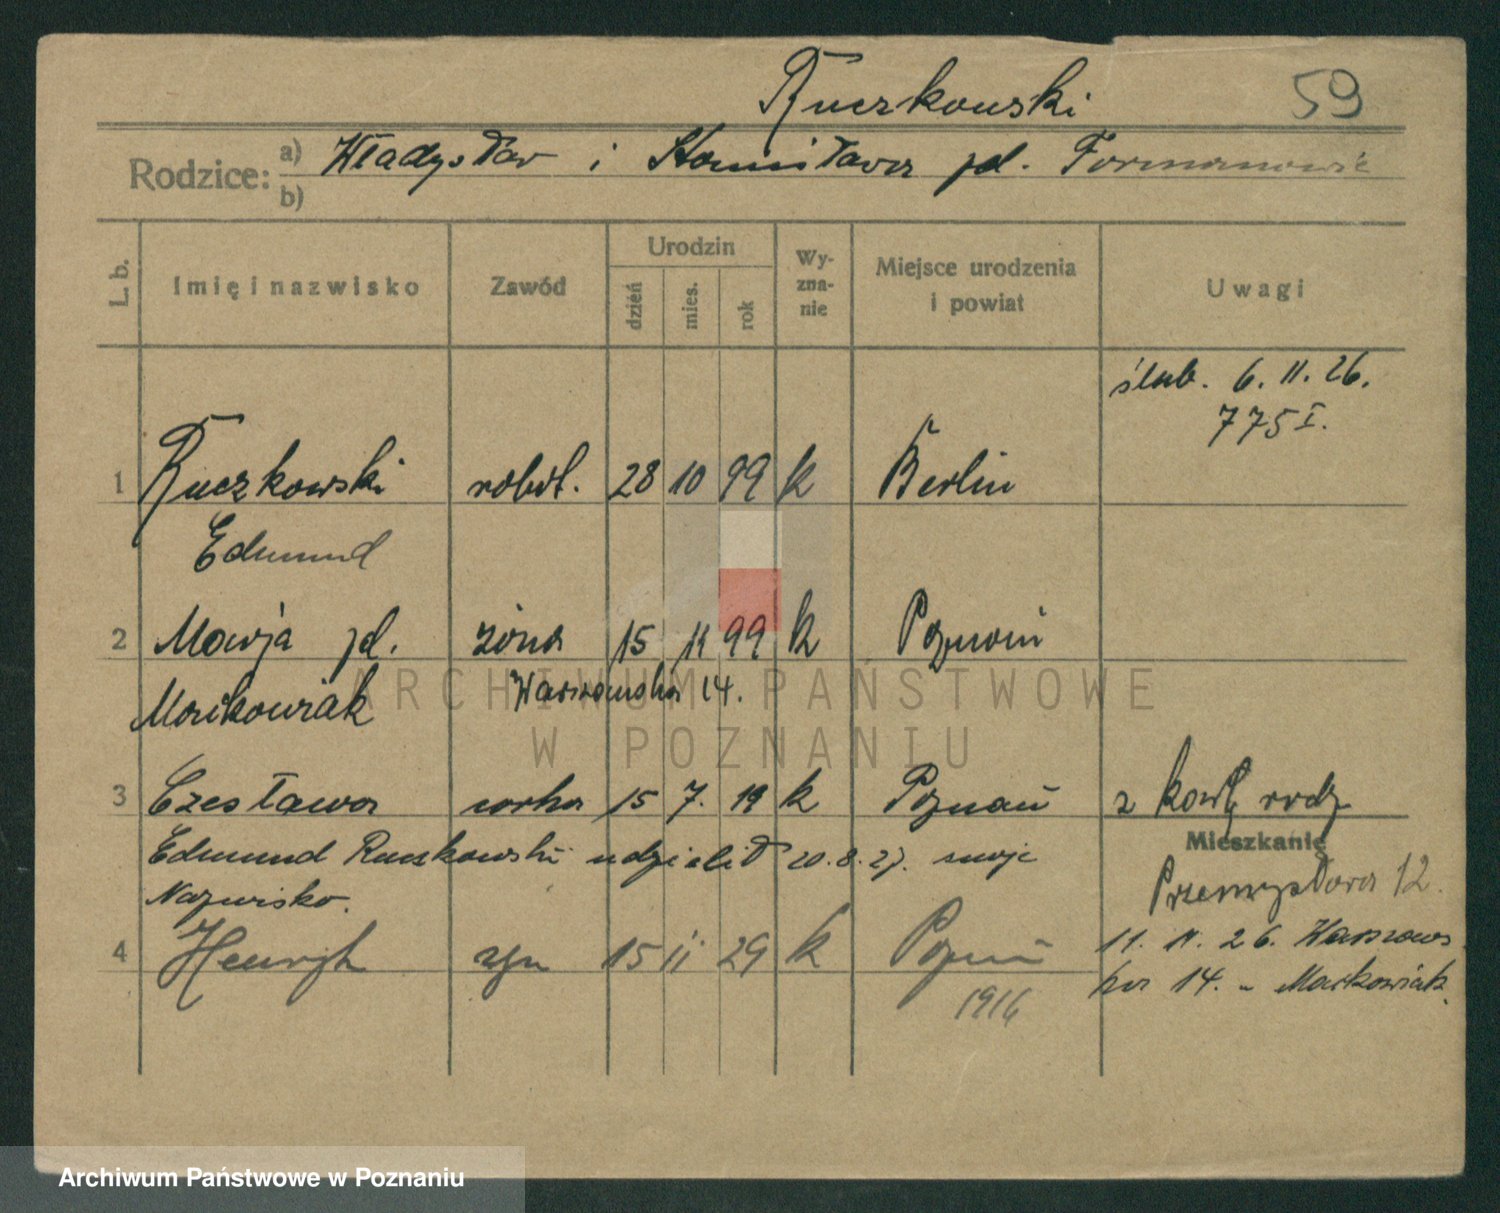 Ruczkowski 59
Rodzice: a) Władysław i Stanisława zd. Formanowic
b)
L. b. Imię i nazwisko Zawód Urodzin dzień mies. rok Wy-zna-nie Miejsce urodzenia i powiat Uwagi
ślub. 6. 11. 26.
775 I.
1 Ruczkowski robot. 28 10 99 k Berlin
Edmund
2 Marja zd. żona 15 11 99 k Poznań
Markowiak Warszawska 14.
ARCHIWUM PAŃSTWOWE
W POZNANIU
3 Czesława córka 15 7. 19 k Poznań z karty rodz
Mieszkanie
Edmund Ruczkowski udzielił 20.8.27. swoje
Przemysłowa 12.
Nazwisko.
4 Henryk syn 15 11 29 k Poznań
11. 11. 26. Warszaws
ka 14. - Markowiak.
1916
Archiwum Państwowe w Poznaniu